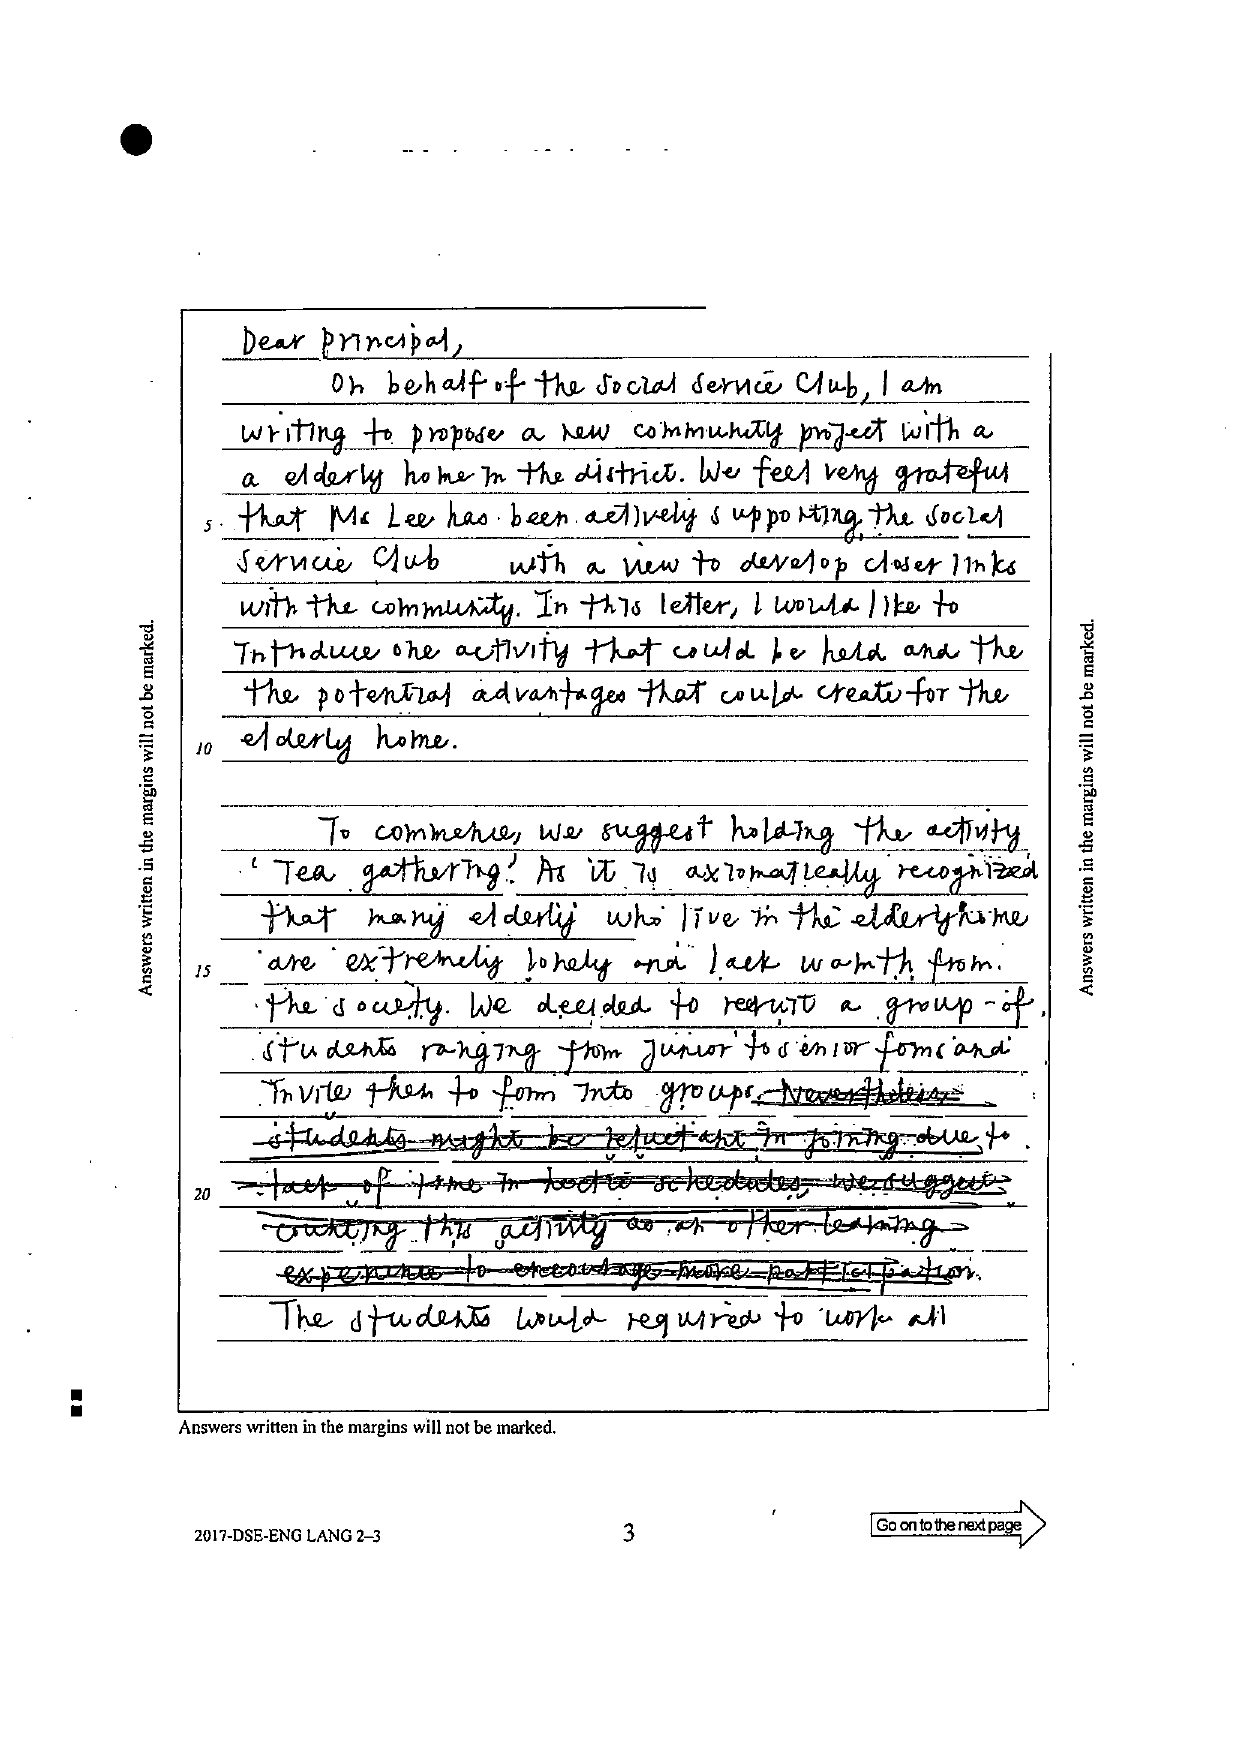 Dear principal,
On behalf of the social service Club, I am
writing to propose a new community project with a
a elderly home in the district. We feel very grateful
5 that Ms Lee has been actively supporting the social
Service Club with a view to develop closer links
with the community. In this letter, I would like to
introduce one activity that could be held and the
the potential advantages that could create for the
10 elderly home.
To commence, we suggest holding the activity
'Tea gathering'. As it is axiomatically recognized
that many elderly who live in the elderly home
15 are extremely lonely and lack wamth from
the society. We decided to recruit a group of
students ranging from junior to senior foms and
invite them to form into groups. Nevertheless
students might be reluctant in joining due to
20 lack of time in hectic schedules, we suggest
counting this activity as an other learning
experience to encourage more participation.
The students would required to work all
Answers written in the margins will not be marked.
Answers written in the margins will not be marked.
Answers written in the margins will not be marked.
2017-DSE-ENG LANG 2–3
3
Go on to the next page